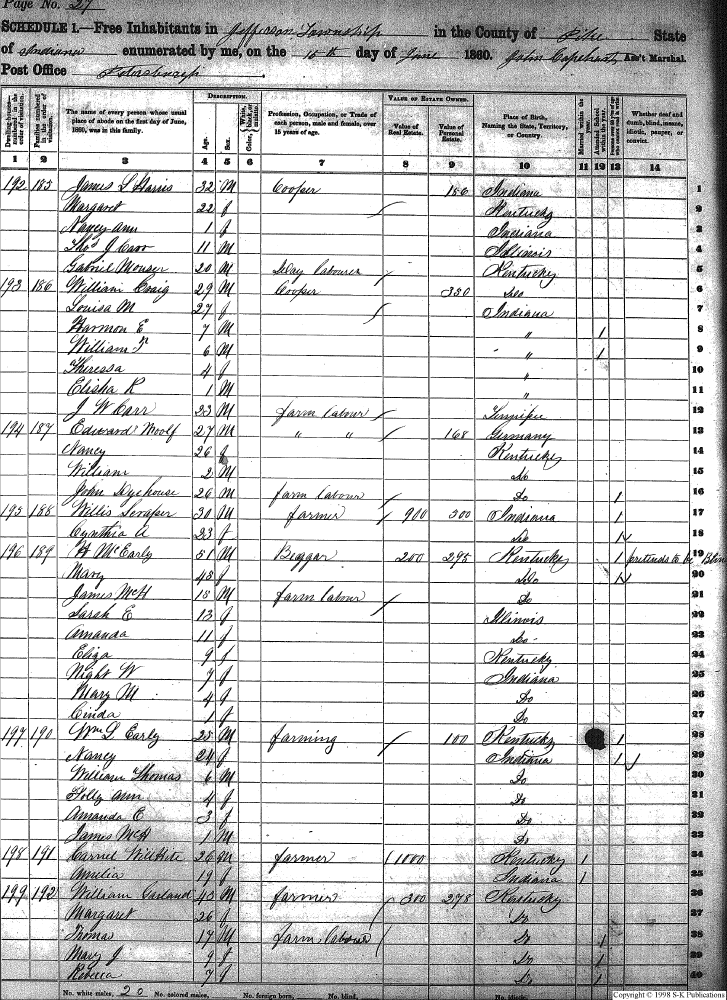 Page No. 27
SCHEDULE 1.—Free Inhabitants in Jefferson Township in the County of Pike State
of Indiana enumerated by me, on the 15th day of June 1860. John Capehart, Ass't Marshal.
Post Office
DESCRIPTION. VALUE OF ESTATE OWNED.
Dwelling-houses—numbered in the order of visitation. Families numbered in the order of visitation. The name of every person whose usual place of abode on the first day of June, 1860, was in this family. Age. Sex. Color, White, black, or mulatto. Profession, Occupation, or Trade of each person, male and female, over 15 years of age. Value of Real Estate. Value of Personal Estate. Place of Birth, Naming the State, Territory, or Country. Married within the year. Attended School within the year. Whether deaf and dumb, blind, insane, idiotic, pauper, or convict.
1 2 3 4 5 6 7 8 9 10 11 12 13 14
192 185 James L Harris 32 M Cooper 156 Indiana 1
Margaret 22 f Kentucky 2
Nancy Ann 1 f Indiana 3
Thos J Carr 11 M Illinois 4
Gabriel Mouser 20 M Day labourer Kentuckey 5
193 186 William Craig 29 M Cooper 330 Do 6
Louisa M 27 f Indiana 7
Harmon E 7 M " 1 8
William F 6 M " 1 9
Theressa 4 f " 10
Elisha R 1 M " 11
J W Carr 23 M farm labour 12
194 187 Edward Woolf 27 M " " 168 Germany 13
Nancy 26 f Kentuckey 14
William 2 M Do 15
John Dyehouse 26 M farm labour Do 1 16
195 188 Willis Scraper 30 M farmer 900 300 Indiana 1 17
Cynthia A 23 f Do 1 18
196 189 McEarly 51 M Beggar 200 295 Kentuckey 1 pretends to be Blin 19
Mary 45 f Do 1 20
James McH 15 M farm labour Do 21
Sarah E 13 f Illinois 22
Amanda 11 f Do 23
Eliza 9 f Kentucky 24
Night W 7 f Indiana 25
Mary M 4 f Do 26
Cinda 1 f Do 27
197 190 Wm L Early 25 M farming 100 Kentucky 1 28
Nancy 24 f Indiana 1 29
William Thomas 6 M Do 30
Holly Ann 4 f Do 31
Amanda E 3 f Do 32
James McH 1 M Do 33
198 191 Carnel Willhite 26 M farmer 1000 Kentuckey 1 34
Amelia 19 f Indiana 1 35
199 192 William Garland 43 M farmer 300 278 Kentuckey 36
Margaret 26 f Do 37
Thomas 17 M farm labour Do 1 38
Mary J 9 f Do 1 39
Rebecca 7 f Do 1 40
No. white males, 20 No. colored males, No. foreign born, No. blind, No. idiotic,
Copyright © 1998 S-K Publications